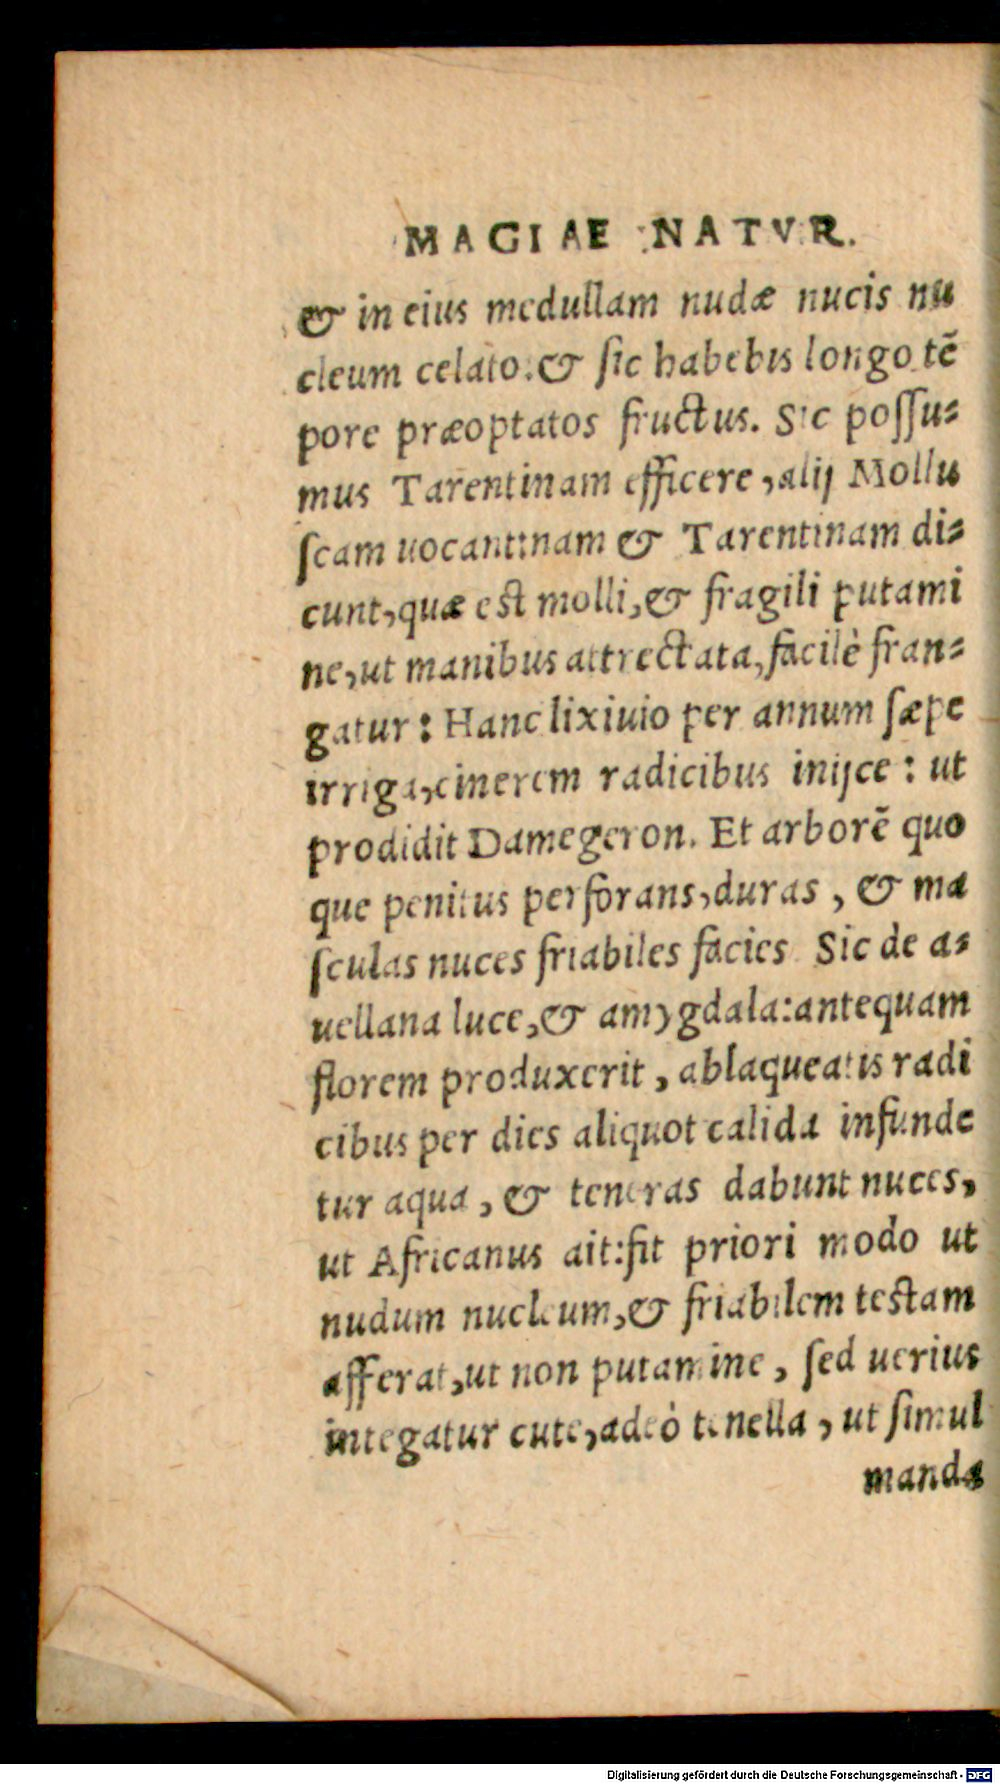 MAGIAE NATVR.
& in eius medullam nudæ nucis nu
cleum celato.& ſic habebis longo tẽ
pore præoptatos fructus. Sic poſſu⸗
mus Tarentinam efficere, alij Mollu
ſcam uocant:nam & Tarentinam di⸗
cunt,quæ est molli,& fragili putami
ne,ut manibus attrectata,facilè fran⸗
gatur: Hanc lixiuio per annum ſæpe
irriga,cinerem radicibus inijce: ut
prodidit Damegeron. Et arborẽ quo
que penitus perforans,duras, & ma
ſculas nuces friabiles facies. Sic de a⸗
uellana luce,& amygdala:antequam
florem produxerit, ablaqueatis radi
cibus per dies aliquot calida infunde
tur aqua, & teneras dabunt nuces,
ut Africanus ait:fit priori modo ut
nudum nucleum,& friabilem testam
afferat,ut non putamine, ſed uerius
integatur cute,adeò tenella, ut ſimul
manda
Digitalisierung gefördert durch die Deutsche Forschungsgemeinschaft - DFG